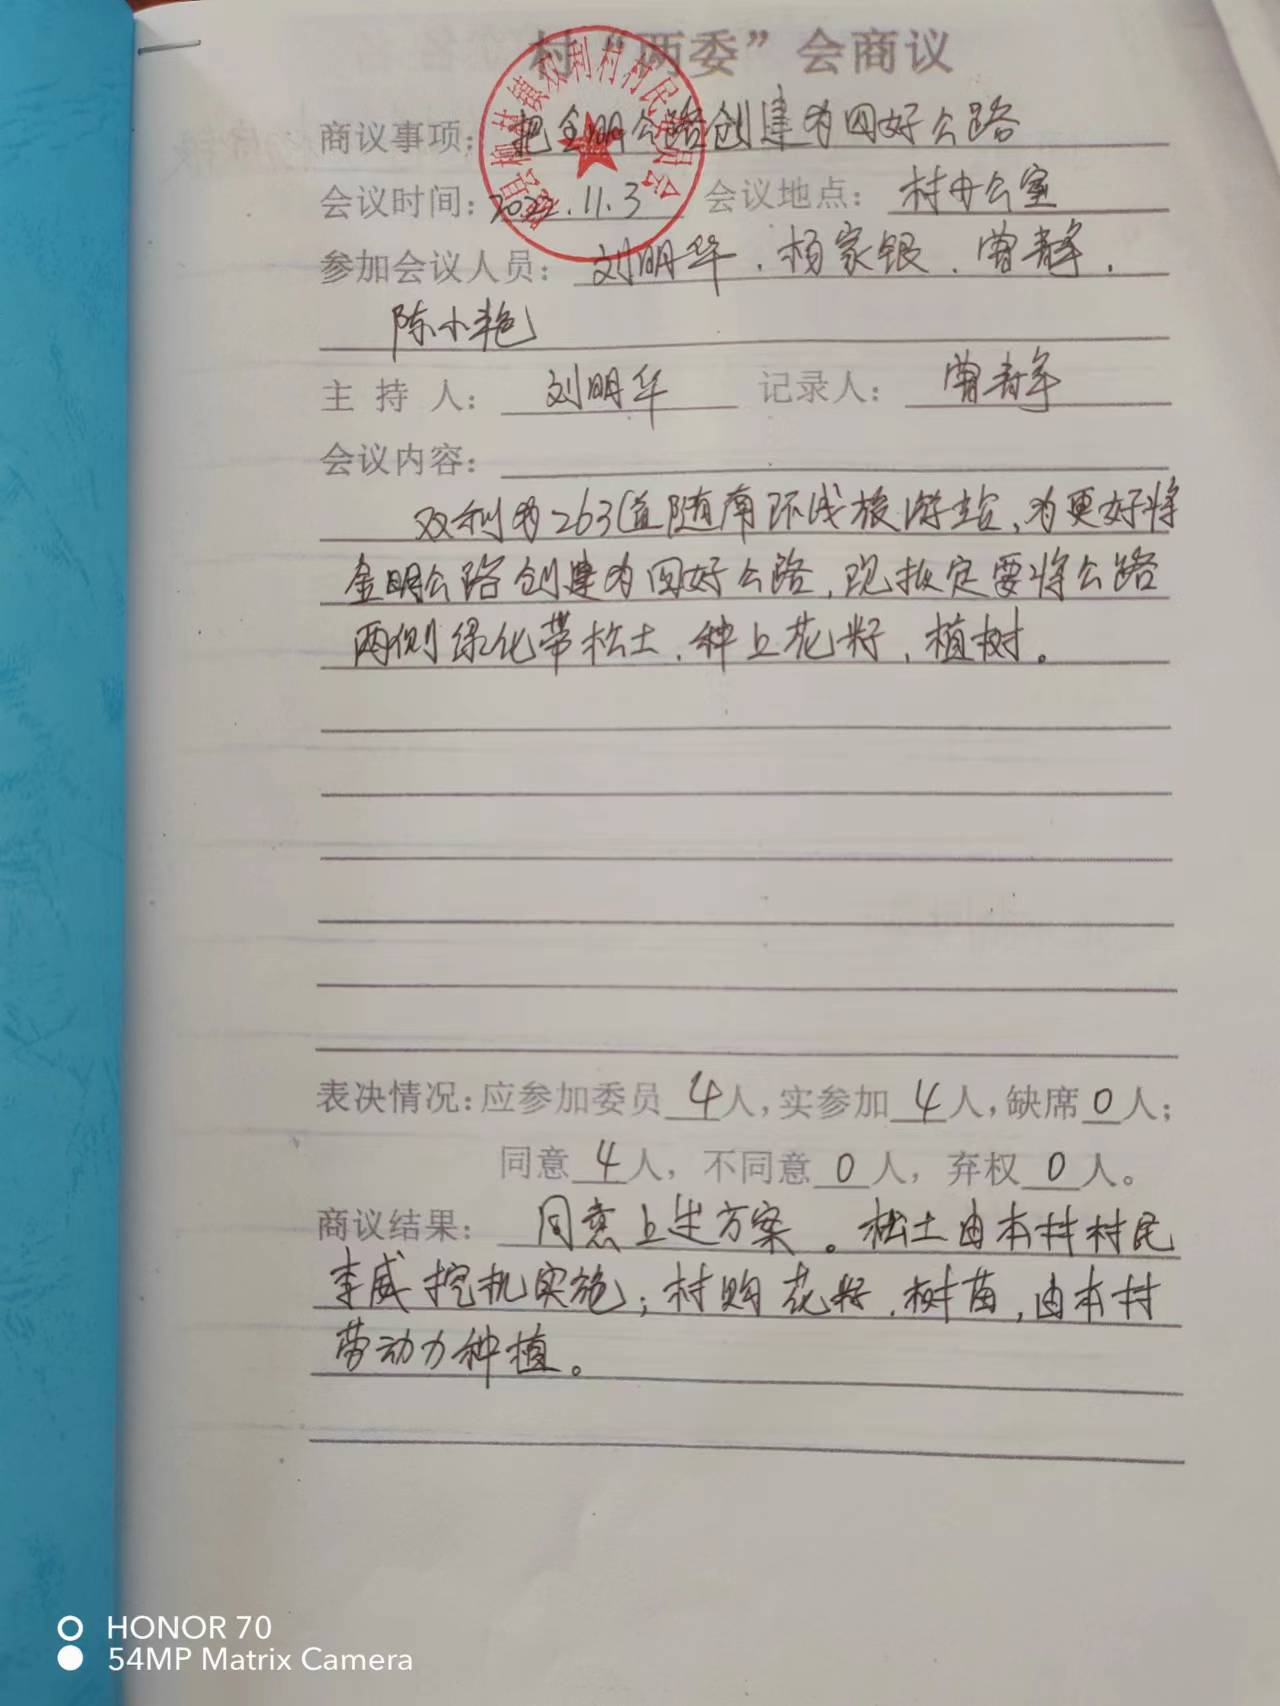 村“两委”会商议
商议事项：把金明公路创建为四好公路
会议时间：2022.11.3 会议地点：村办公室
参加会议人员：刘明华、杨家银、曾静、
陈小艳
主持人：刘明华 记录人：曾静
会议内容：
双利为263道随南环线旅游主，为更好将
金明公路创建为四好公路，现拟定要将公路
两侧绿化带松土、种上花籽、植树。
表决情况：应参加委员4人，实参加4人，缺席0人；
同意4人，不同意0人，弃权0人。
商议结果：同意上述方案。松土由本村村民
李威挖机实施；村购花籽、树苗，由本村
劳动力种植。
县柳林镇双利村村民委员会
HONOR 70
54MP Matrix Camera